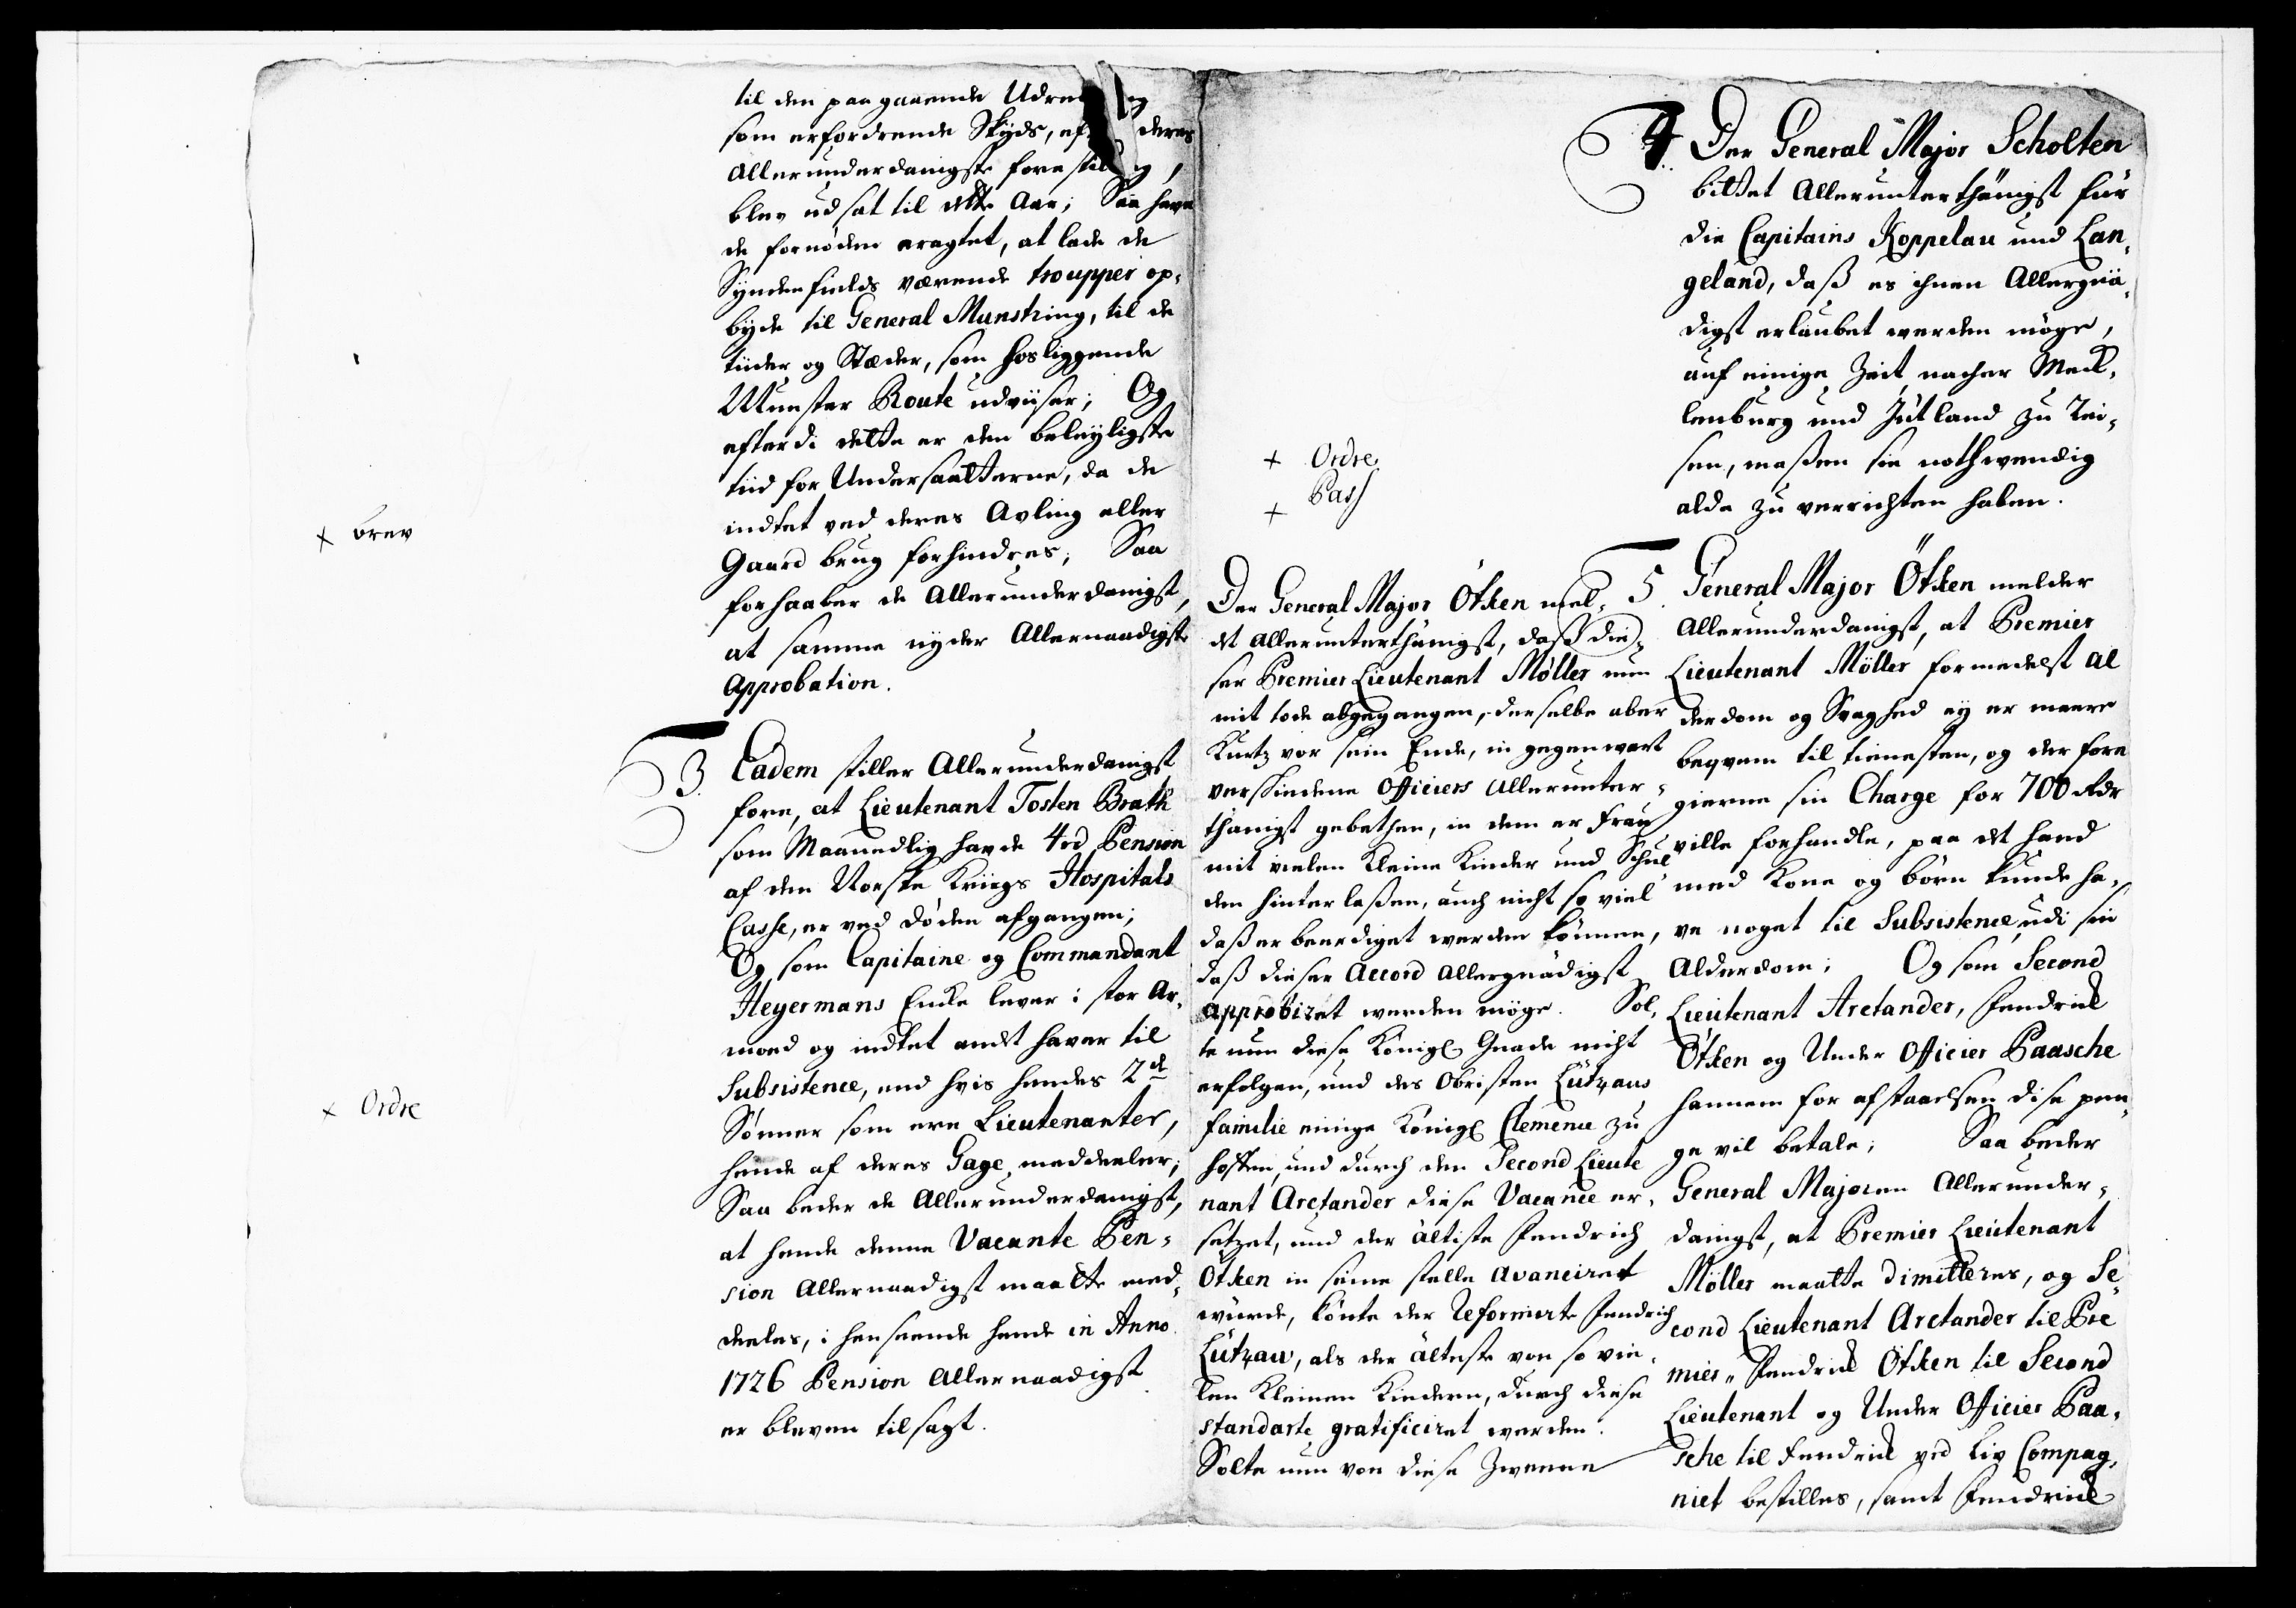 til den paagaaende Udred og
som erfordrende Skyds, eft deres
allerunderdanigste forestil g,
blev udsat til dette Aar; Saa have
de fornøden eragtet, at lade de
Syndenfields værende troupper op-
byde til General Munstring, til de
tiider og Stæder, som hosliggende
Munster Route udviiser; Og
efterdi dette er den beleyligste
tiid for Undersaatterne, da de
indtet ved deres Avling eller
Gaard brug forhindres; Saa
forhaaber de Allerunderdanigst,
at samme nyder Allernaadigste
Approbation.
+ brev
3. Eadem stiller Allerunderdanigst
fore, at Lieutenant Tosten Brath
som Maanedlig havde 4rd Pension
af den Norske Kriigs Hospitals
Casse, er ved døden afgangen;
Og som Capitaine og Commandant
Heyermans Encke lever i stor Ar-
moed og indtet andt haver til
Subsistence, end hvis hendes 2de
Sønner som ere Lieutenanter,
hende af deres Gage meddeeler;
Saa beder de Allerunderdanigst,
at hende denne Vacante Pen-
sion Allernaadigst maatte med-
deeles, i henseende hende in Anno
1726 Pension Allernaadigst
er bleven tilsagt.
+ Ordre
4. Der General Major Scholten
bittet Allerunterthänigst für
die Capitains Koppelau und Lan-
geland, daß es ihnen Allergnä-
digst erlaubet werden möge,
auf einige Zeit nacher Meck-
lenburg und Jütland zu Rei-
sen, maßen sie nothwendig
alda zu verrichten haben.
+ Ordre
+ Pass
Der General Major Ötken mel-
det allerunterthänigst, daß die-
ser Premier Lieutenant Möller nun
mit tode abgegangen, derselbe aber
Kurtz vor sein Ende, in gegenwart
verschiedene Officiers allerunter-
thänigst gebethen, in dem er Frau
mit vielen kleine Kinder und Schul
den hinterlaßen, auch nicht so viel
daß er beerdiget werden können,
daß dieser Accord allergnädigst
approbiret werden möge. Sol-
te nun diese Königl Gnade nicht
erfolgen, und des Obristen Lützaus
familie einige Königl Clemence zu
hoffen, und durch den Second Lieute
nant Arctander diese Vacance er-
setzet, und der ältiste Fendrich
Ötken in seine stelle avanciret
würde, könte der Reformirte Fendrich
Lützau, als der älteste von so vie-
len kleinen Kindern, durch diese
standarte gratificiret werden.
Solte nun von diese Zweene
5. General Major Ötken melder
Allerunderdanigst, at Premier
Lieutenant Möller formedelst al
derdom og Svaghed ey er meere
beqvem til tienesten, og derfore
gierne sin Charge for 700 Rdr
ville forhandle, paa det hand
med Kone og børn kunde ha-
ve noget til Subsistence udi sin
Alderdom; Og som Second
Lieutenant Arctander, Fendrick
Ötken og Under Officier Paasche
hannem for afstaaelsen dise pen-
ge vil betale; Saa beder
General Majoren Allerunder-
danigst, at Premier Lieutenant
Möller maatte dimitteres, og Se-
cond Lieutenant Arctander til Pre
mier, Fendrick Ötken til Second
Lieutenant og Under Officier Paa-
sche til Fendrick ved Liv Compag-
niet bestilles, samt Fendrick